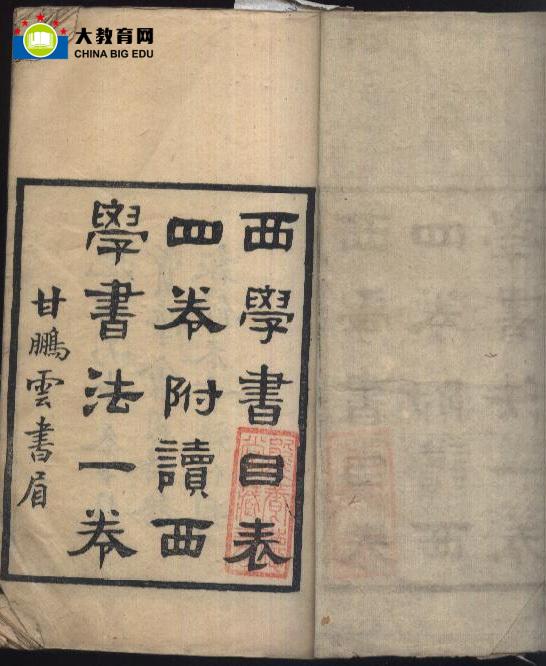 大教育网
CHINA BIG EDU
西學書目表
四卷附讀西
學書法一卷
甘鵬雲書眉